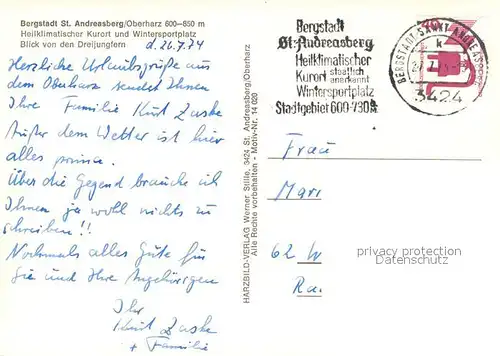 Bergstadt St. Andreasberg/Oberharz 600–850 m
Heilklimatischer Kurort und Wintersportplatz
Blick von den Dreijungfern
d. 26.7.74
Herzliche Urlaubsgrüße aus
dem Oberharz sendet Ihnen
Ihre Familie Kurt Zaske
Außer dem Wetter ist hier
alles prima.
Über die Gegend brauche ich
Ihnen ja wohl nichts zu
schreiben!!
Nochmals alles Gute für
Sie und Ihre Angehörigen
Ihr
Kurt Zaske
+ Familie
HARZBILD-VERLAG Werner Stille, 3424 St. Andreasberg/Oberharz
Alle Rechte vorbehalten - Motiv-Nr. 14 020
Bergstadt
St. Andreasberg
Heilklimatischer
Kurort staatlich anerkannt
Wintersportplatz
Stadtgebiet 600-730
BERGSTADT SANKT ANDREASBERG
k
3424
Frau
Mari
62 W
Ra.
privacy protection
oldthing.de